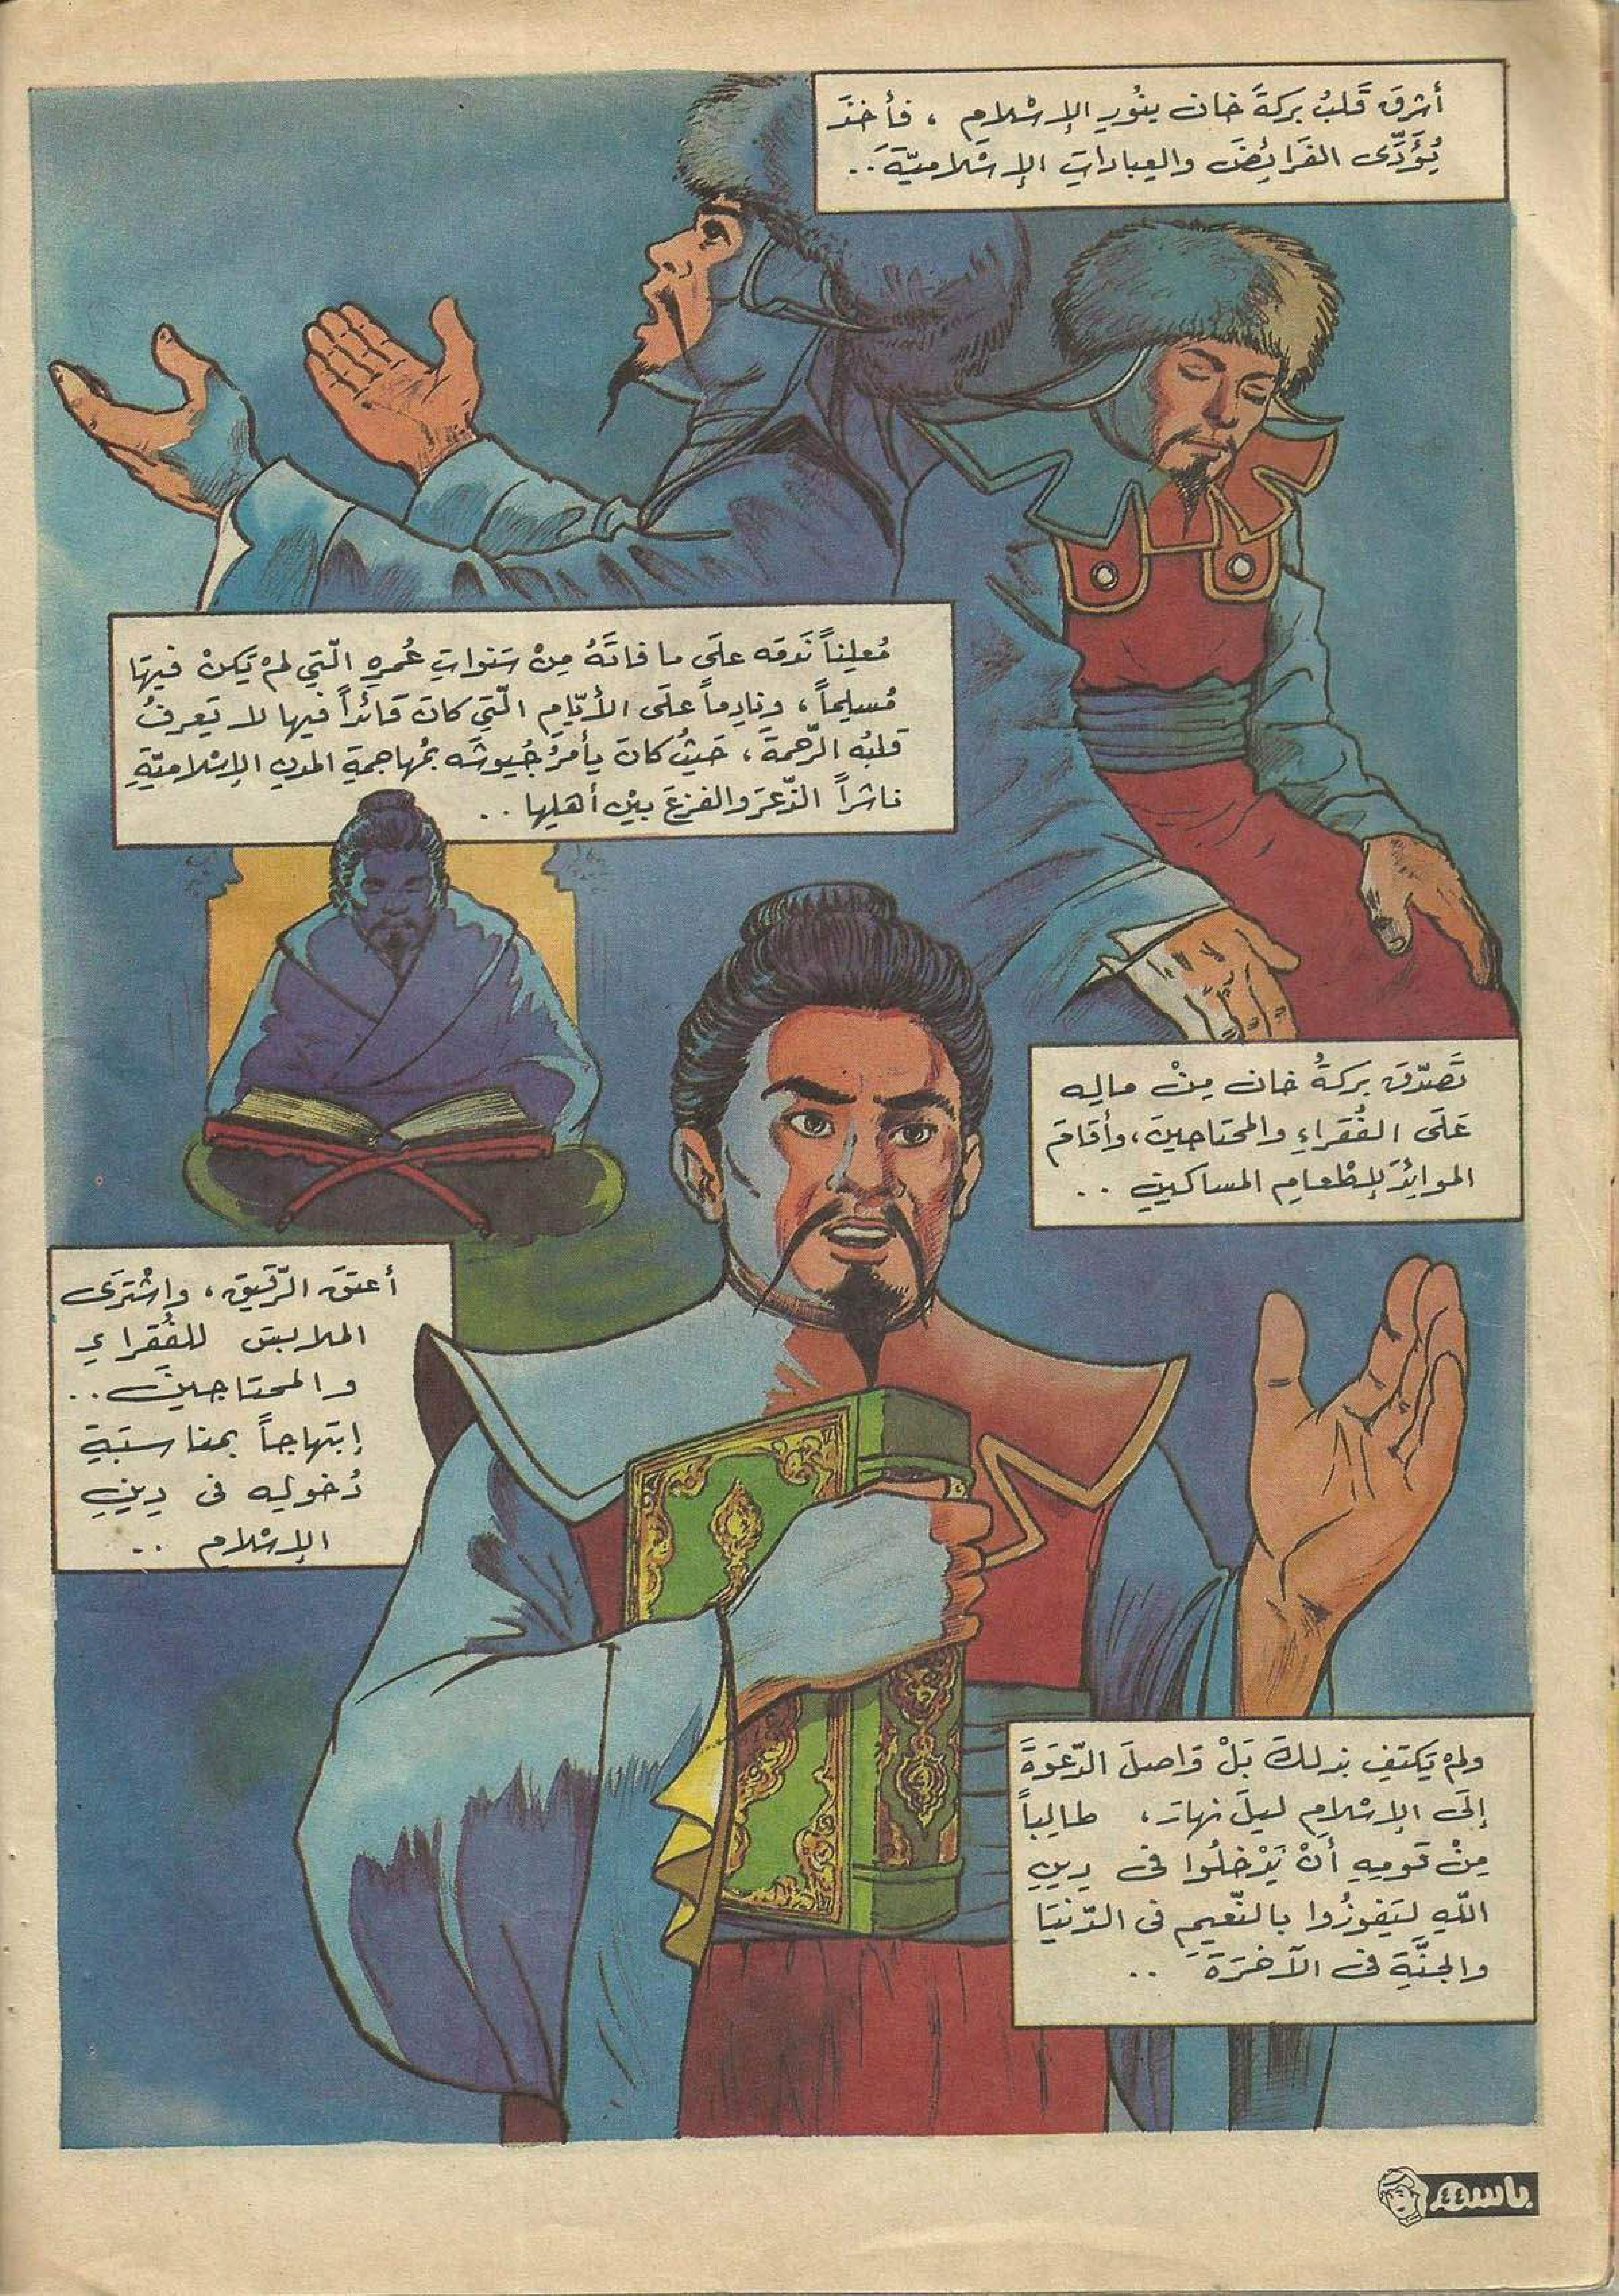 أشرقَ قَلبُ بَركةَ خان بنُورِ الإسْلامِ ، فأخذَ
يُؤَدّى الفَرائِضَ والعِباداتِ الإسْلاميّةَ..
مُعلِناً نَدمَه علَى ما فاتَهُ مِنْ سَنواتِ عُمرِهِ الّتِي لمْ يَكنْ فيهَا
مُسلِماً ، ونادِماً علَى الأيّامِ الّتِي كانَ قَائداً فيها لا تَعرِفُ
قَلبُه الرّحمةَ ، حَيثُ كانَ يأمرُ جُيوشَه بمُهاجمةِ المدنِ الإسْلاميّةِ
ناشراً الذّعرَ والفزعَ بيْن أهلِها ..
تَصدّقَ بركةُ خان مِنْ مالِه
عَلَى الفُقراءِ والمحتاجينَ ، وأقامَ
الموائِدَ لإطْعامِ المساكينِ ..
أعتقَ الرّقيقَ ، واشْترَى
الملابسَ للفُقراءِ
والمحتاجينَ ..
إبتهاجاً بمناسبَةِ
دُخولِه فى دِينِ
الإسْلامِ ..
ولمْ يَكتفِ بذلكَ بَلْ وَاصلَ الدّعوَةَ
إلَى الإسْلامِ ليلَ نهارَ ، طالِباً
مِنْ قومِهِ أنْ يَدْخلُوا فى دِينِ
اللّهِ ليَفوزُوا بالنّعيمِ فى الدّنيَا
والجنّةِ فى الآخرَةَ ..
باسم